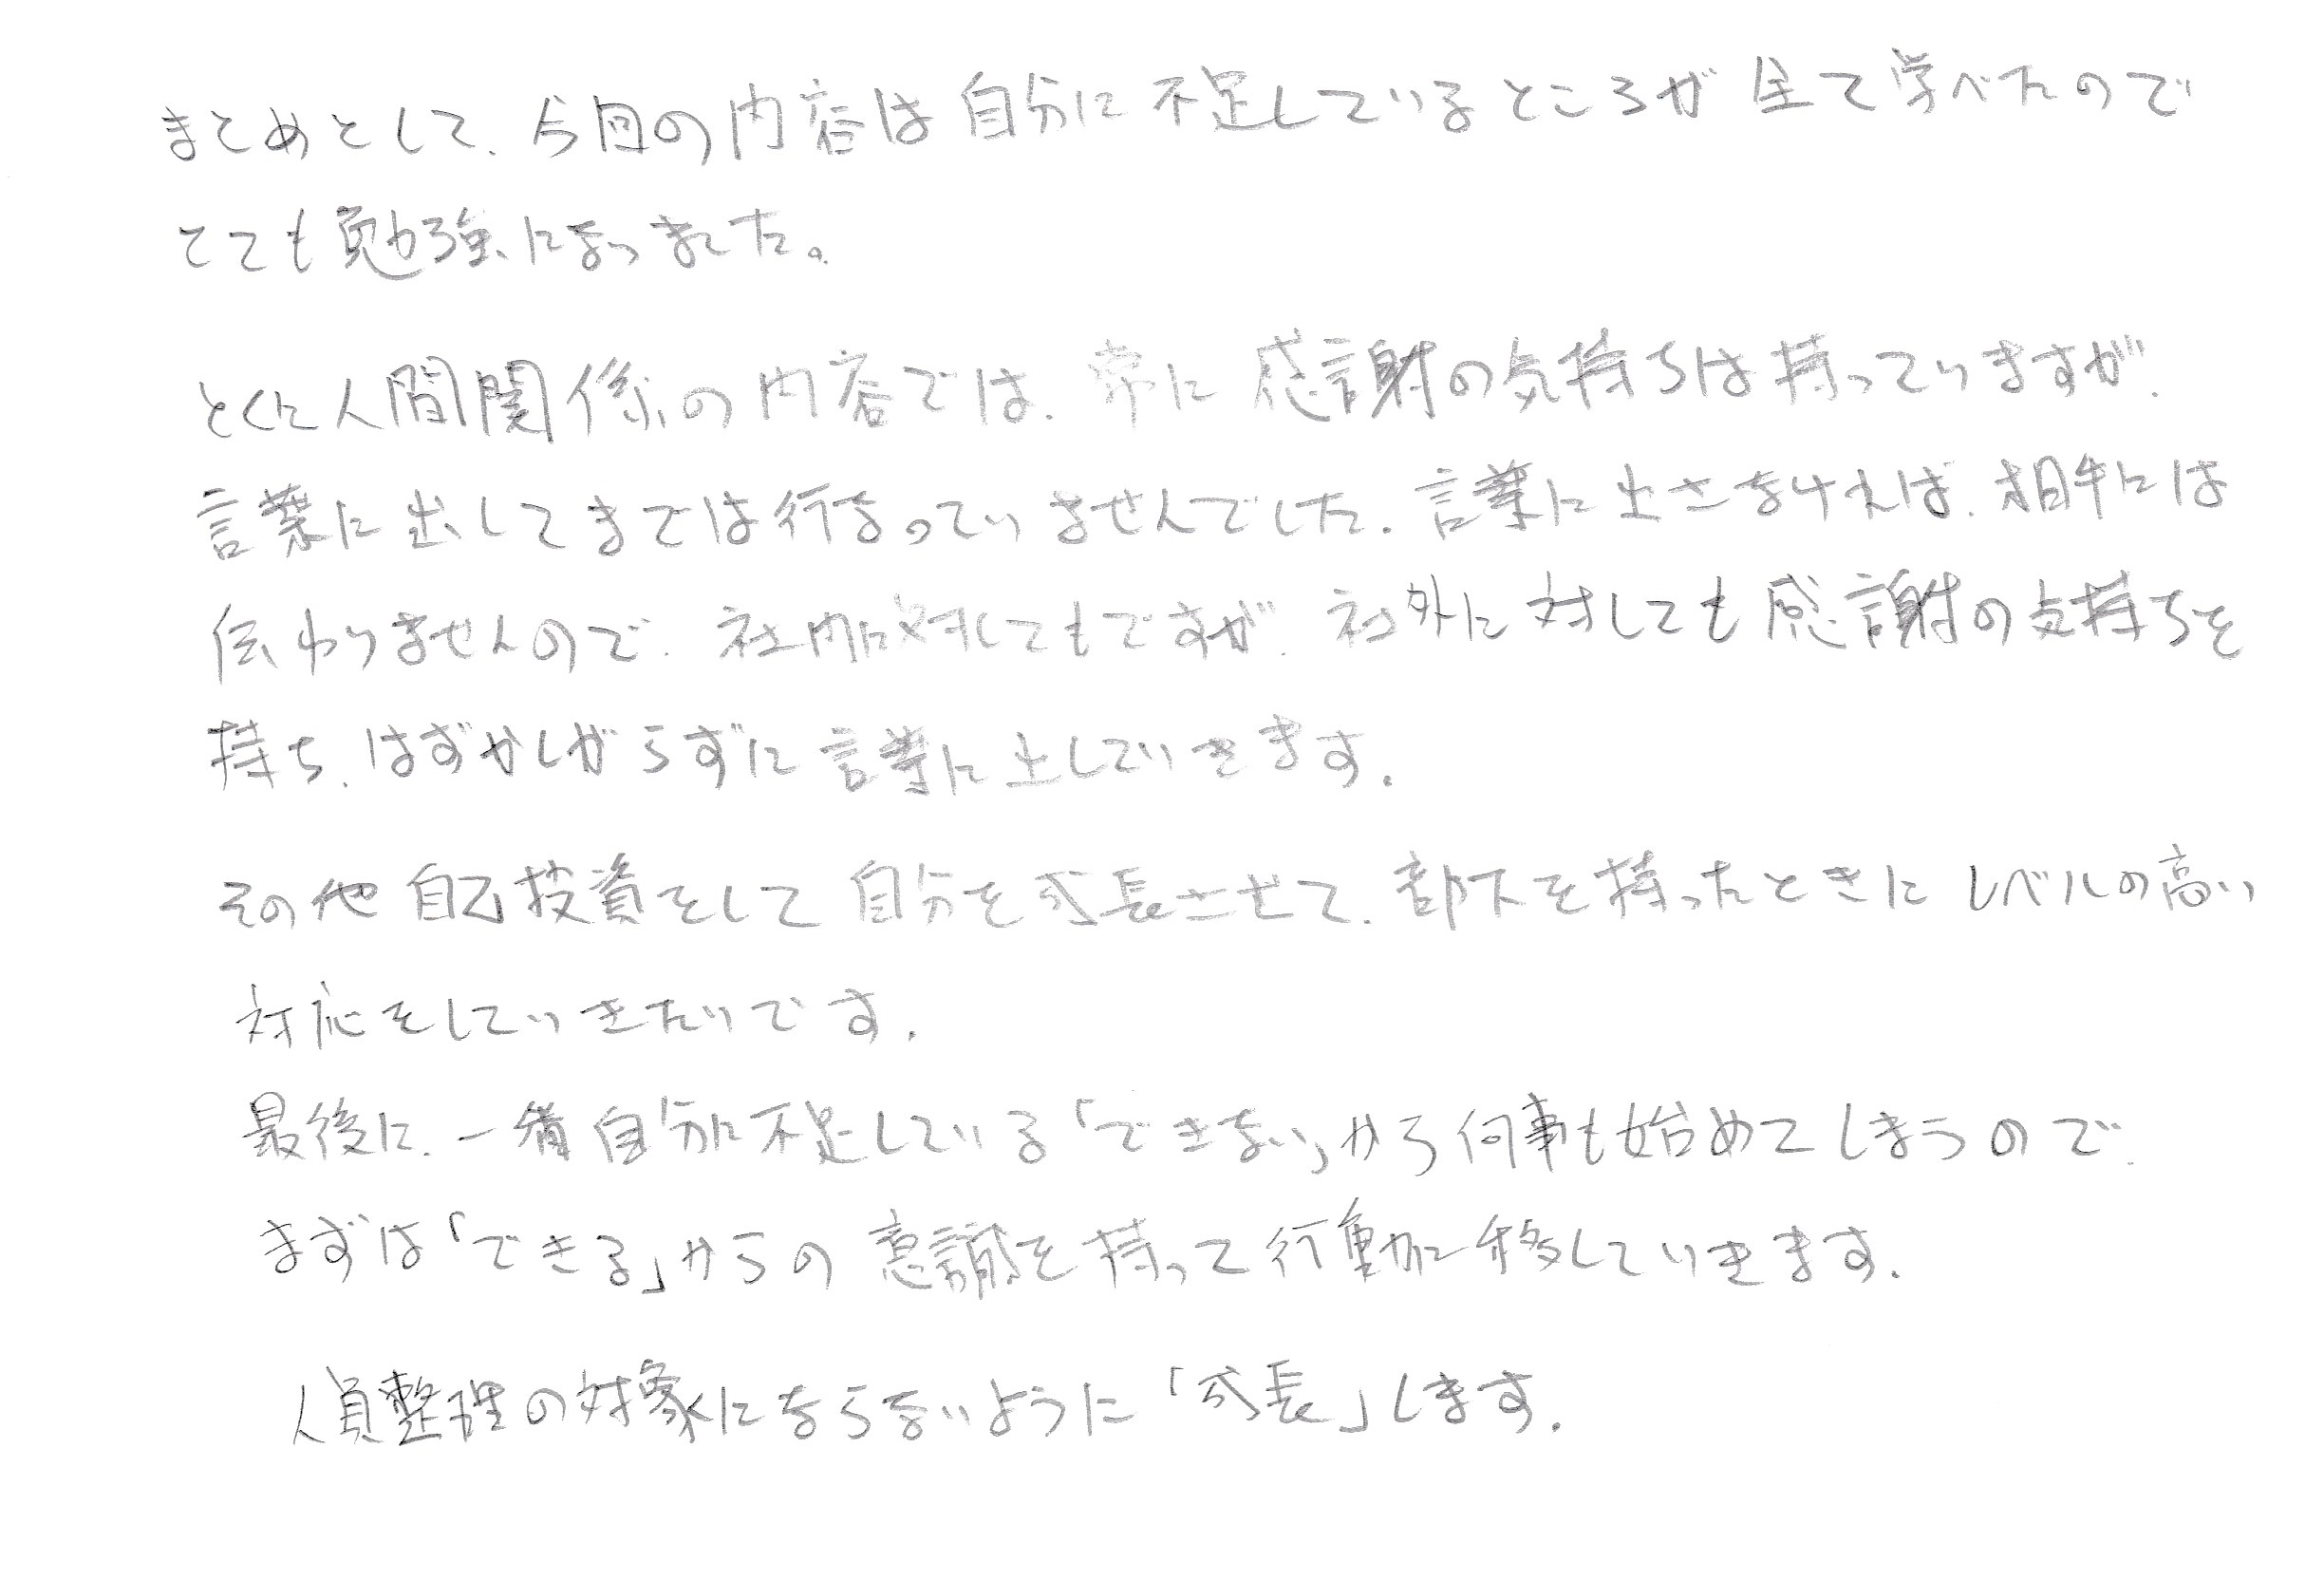 まとめとして、今回の内容は自分に不足しているところが全て学べたので
とても勉強になりました。
とくに人間関係の内容では、常に感謝の気持ちは持っていますが、
言葉に出してまでは行なっていませんでした。言葉に出さなければ、相手には
伝わりませんので、社内に対してもですが、社外に対しても感謝の気持ちを
持ち、はずかしがらずに言葉に出していきます。
その他自己投資をして自分を成長させて、部下を持ったときにレベルの高い
対応をしていきたいです。
最後に、一番自分に不足している「できない」から何事も始めてしまうので、
まずは「できる」からの意識を持って行動に移していきます。
人員整理の対象にならないように「成長」します。